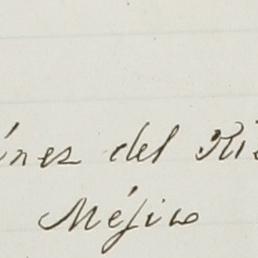 ínez del Rí
Méjico